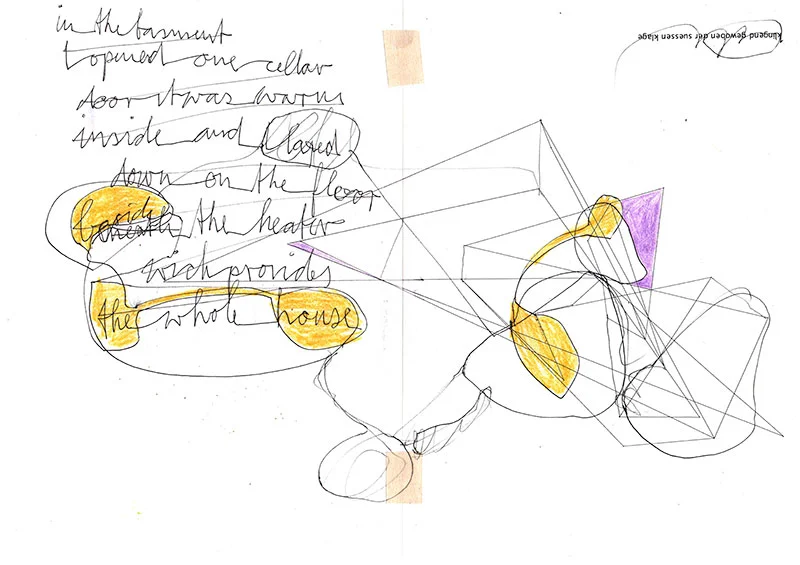 in the basment
I opened one cellar
door it was warm
inside and I layed
down on the floor
beside
beneath the heater
wich provides
the whole house
klingend gewoben der suessen klage